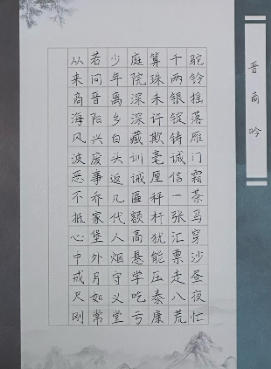 晋商吟
驼铃摇落雁门霜茶马穿沙昼夜忙
千两银锭铸诚信一张汇票走八荒
算珠未行欺毫厘秤杆犹能压泰康
庭院深深藏训诫匾额高悬学吃亏
少年离乡白头返几代人烟守义堂
若问晋阳兴废事乔家堡外月如常
从来商海风波恶不抵心中戒尺刚